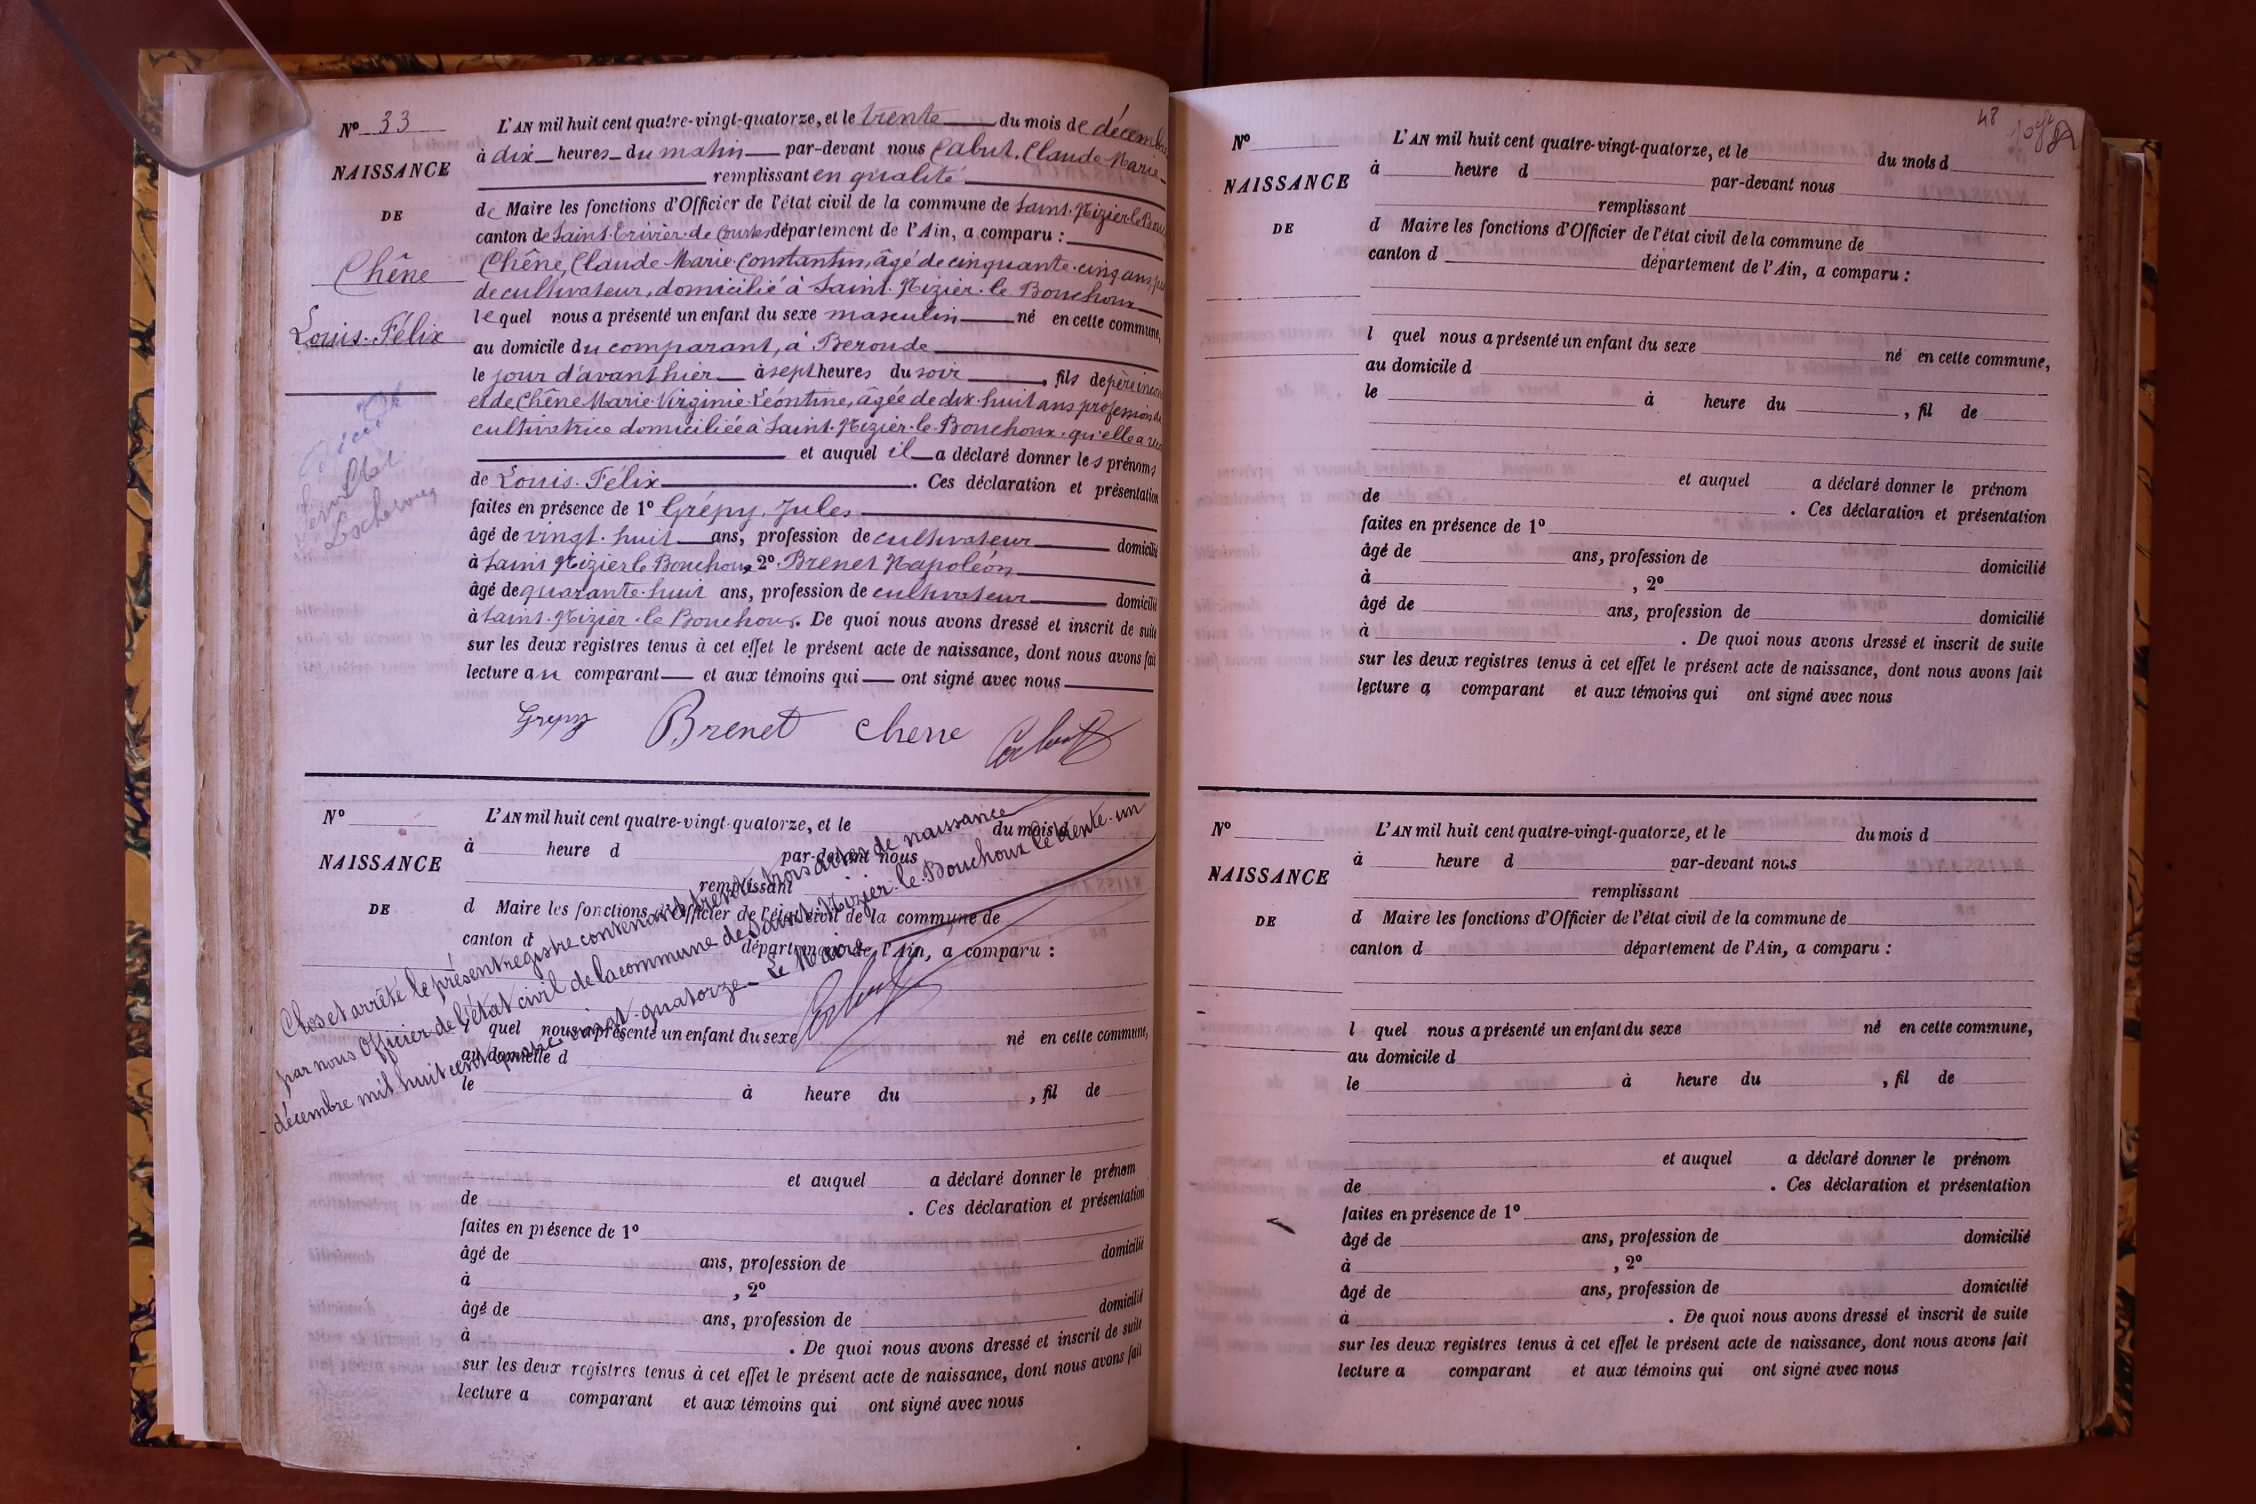 N° 33
NAISSANCE
DE
Chêne
Louis. Félix
L'AN mil huit cent quatre-vingt-quatorze, et le trente du mois de décembre
à dix heures du matin par-devant nous Cabut, Claude Marie
remplissant en qualité
de Maire les fonctions d'Officier de l'état civil de la commune de Saint. Nizier le Bou
canton de Saint. Trivier. de Courtes département de l'Ain, a comparu :
Chêne, Claude Marie Constantin, âgé de cinquante-cinq ans,
de cultivateur, domicilié à Saint. Nizier. le Bouchoux
lequel nous a présenté un enfant du sexe masculin né en cette commune,
au domicile du comparant, à Beroude
le jour d'avant hier à sept heures du soir, fils de père
et de Chêne Marie Virginie Léontine, âgée de dix-huit ans profession de
cultivatrice domiciliée à Saint. Nizier. le Bouchoux. qu'elle a
et auquel il a déclaré donner les prénoms
de Louis. Félix. Ces déclaration et présentation
faites en présence de 1° Grépy, Jules
âgé de vingt. huit ans, profession de cultivateur domicilié
à Saint Nizier le Bouchoux 2° Brenet Napoléon
âgé de quarante. huit ans, profession de cultivateur domicilié
à Saint. Nizier. le Bouchoux. De quoi nous avons dressé et inscrit de suite
sur les deux registres tenus à cet effet le présent acte de naissance, dont nous avons fait
lecture au comparant et aux témoins qui ont signé avec nous
Grepy Brenet Chene Cabut
N°
NAISSANCE
DE
L'AN mil huit cent quatre-vingt-quatorze, et le du mois d
à heure d par-devant nous
remplissant
d Maire les fonctions d'Officier de l'état civil de la commune de
canton d département de l'Ain, a comparu :
l quel nous a présenté un enfant du sexe né en cette commune,
au domicile d
le à heure du , fil de
et auquel a déclaré donner le prénom
de . Ces déclaration et présentation
faites en présence de 1°
âgé de ans, profession de domicilié
à , 2°
âgé de ans, profession de domicilié
à . De quoi nous avons dressé et inscrit de suite
sur les deux registres tenus à cet effet le présent acte de naissance, dont nous avons fait
lecture a comparant et aux témoins qui ont signé avec nous
Clos et arrêté le présent registre contenant trente trois actes de naissance
par nous Officier de l'état civil de la commune de Saint. Nizier. le. Bouchoux le trente. un
décembre mil huit cent quatre vingt. quatorze. Le Maire
Cabut
48
N°
NAISSANCE
DE
L'AN mil huit cent quatre-vingt-quatorze, et le du mois d
à heure d par-devant nous
remplissant
d Maire les fonctions d'Officier de l'état civil de la commune de
canton d département de l'Ain, a comparu :
l quel nous a présenté un enfant du sexe né en cette commune,
au domicile d
le à heure du , fil de
et auquel a déclaré donner le prénom
de . Ces déclaration et présentation
faites en présence de 1°
âgé de ans, profession de domicilié
à , 2°
âgé de ans, profession de domicilié
à . De quoi nous avons dressé et inscrit de suite
sur les deux registres tenus à cet effet le présent acte de naissance, dont nous avons fait
lecture a comparant et aux témoins qui ont signé avec nous
N°
NAISSANCE
DE
L'AN mil huit cent quatre-vingt-quatorze, et le du mois d
à heure d par-devant nous
remplissant
d Maire les fonctions d'Officier de l'état civil de la commune de
canton d département de l'Ain, a comparu :
l quel nous a présenté un enfant du sexe né en cette commune,
au domicile d
le à heure du , fil de
et auquel a déclaré donner le prénom
de . Ces déclaration et présentation
faites en présence de 1°
âgé de ans, profession de domicilié
à , 2°
âgé de ans, profession de domicilié
à . De quoi nous avons dressé et inscrit de suite
sur les deux registres tenus à cet effet le présent acte de naissance, dont nous avons fait
lecture a comparant et aux témoins qui ont signé avec nous